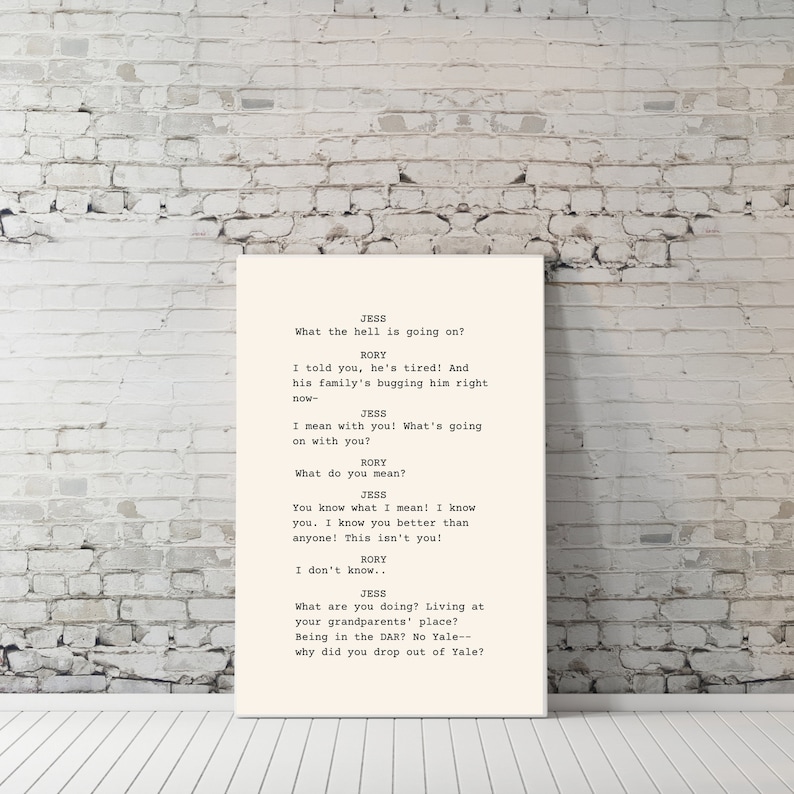 JESS
What the hell is going on?
RORY
I told you, he's tired! And
his family's bugging him right
now-
JESS
I mean with you! What's going
on with you?
RORY
What do you mean?
JESS
You know what I mean! I know
you. I know you better than
anyone! This isn't you!
RORY
I don't know..
JESS
What are you doing? Living at
your grandparents' place?
Being in the DAR? No Yale--
why did you drop out of Yale?